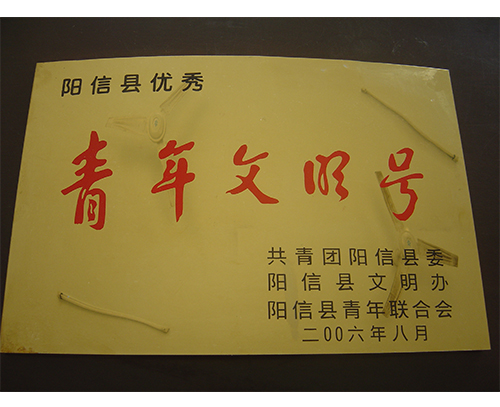 阳信县优秀
青年文明号
共青团阳信县委
阳信县文明办
阳信县青年联合会
二00六年八月